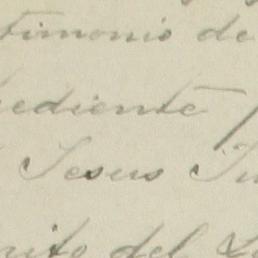 timonio de
ediente
Jesus
rito del